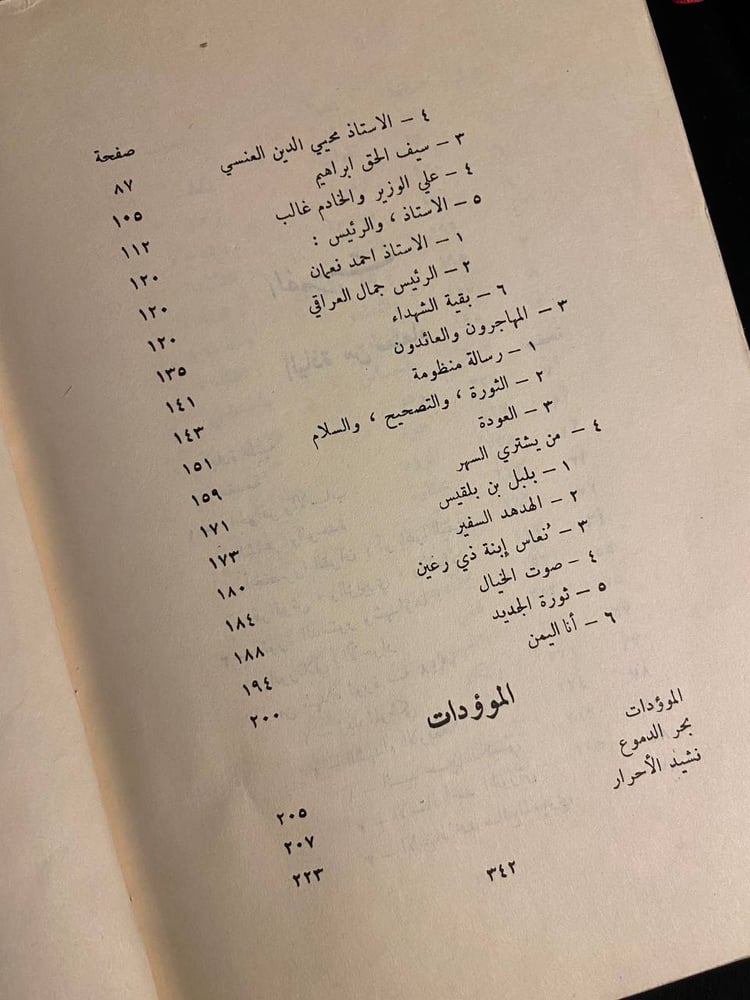 صفحة
٤ – الاستاذ محيي الدين العنسي ٨٧
٣ – سيف الحق ابراهيم ١٠٥
٤ – علي الوزير والخادم غالب ١١٢
٥ – الاستاذ ، والرئيس : ١٢٠
١ – الاستاذ احمد نعمان ١٢٠
٢ – الرئيس جمال العراقي ١٢٠
٦ – بقية الشهداء ١٣٥
٣ – المهاجرون والعائدون ١٤١
١ – رسالة منظومة ١٤٣
٢ – الثورة ، والتصحيح ، والسلام ١٥١
٣ – العودة ١٥٩
٤ – من يشتري السهر ١٧١
١ – بلبل بن بلقيس ١٧٣
٢ – الهدهد السفير ١٨٠
٣ – نُعاس إبنة ذي رعين ١٨٤
٤ – صوت الخيال ١٨٨
٥ – ثورة الجديد ١٩٤
٦ – أنا اليمن ٢٠٠
الموؤدات
الموؤدات ٢٠٥
بحر الدموع ٢٠٧
نشيد الأحرار ٢٢٣
٣٤٢